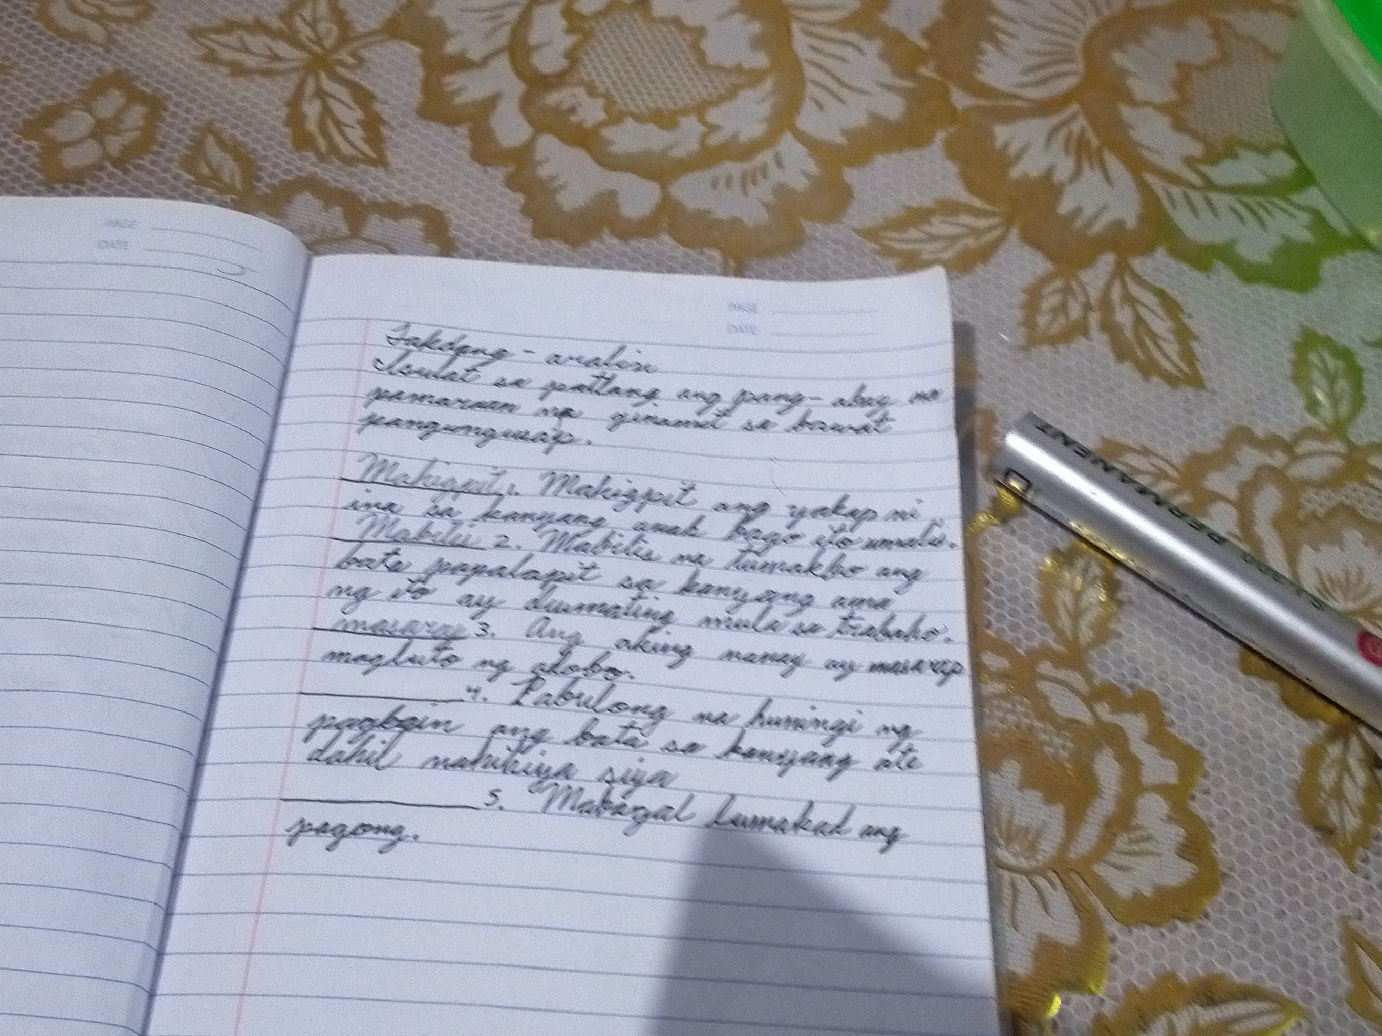 PAGE
DATE
PAGE
DATE
Takdang-aralin
Isulat sa patlang ang pang-abay na
pamaraan na ginamit sa bawat
pangungusap.
Mahigpit 1. Mahigpit ang yakap ni
ina sa kanyang anak bago ito umalis.
Mabilis 2. Mabilis na tumakbo ang
bata papalapit sa kanyang ama
ng ito ay dumating mula sa trabaho.
masarap 3. Ang aking nanay ay masarap
magluto ng adobo.
4. Pabulong na humingi ng
pagkain ang bata sa kanyang ate
dahil nahihiya siya
5. Mabagal lumakad ang
pagong.
PERMANENT